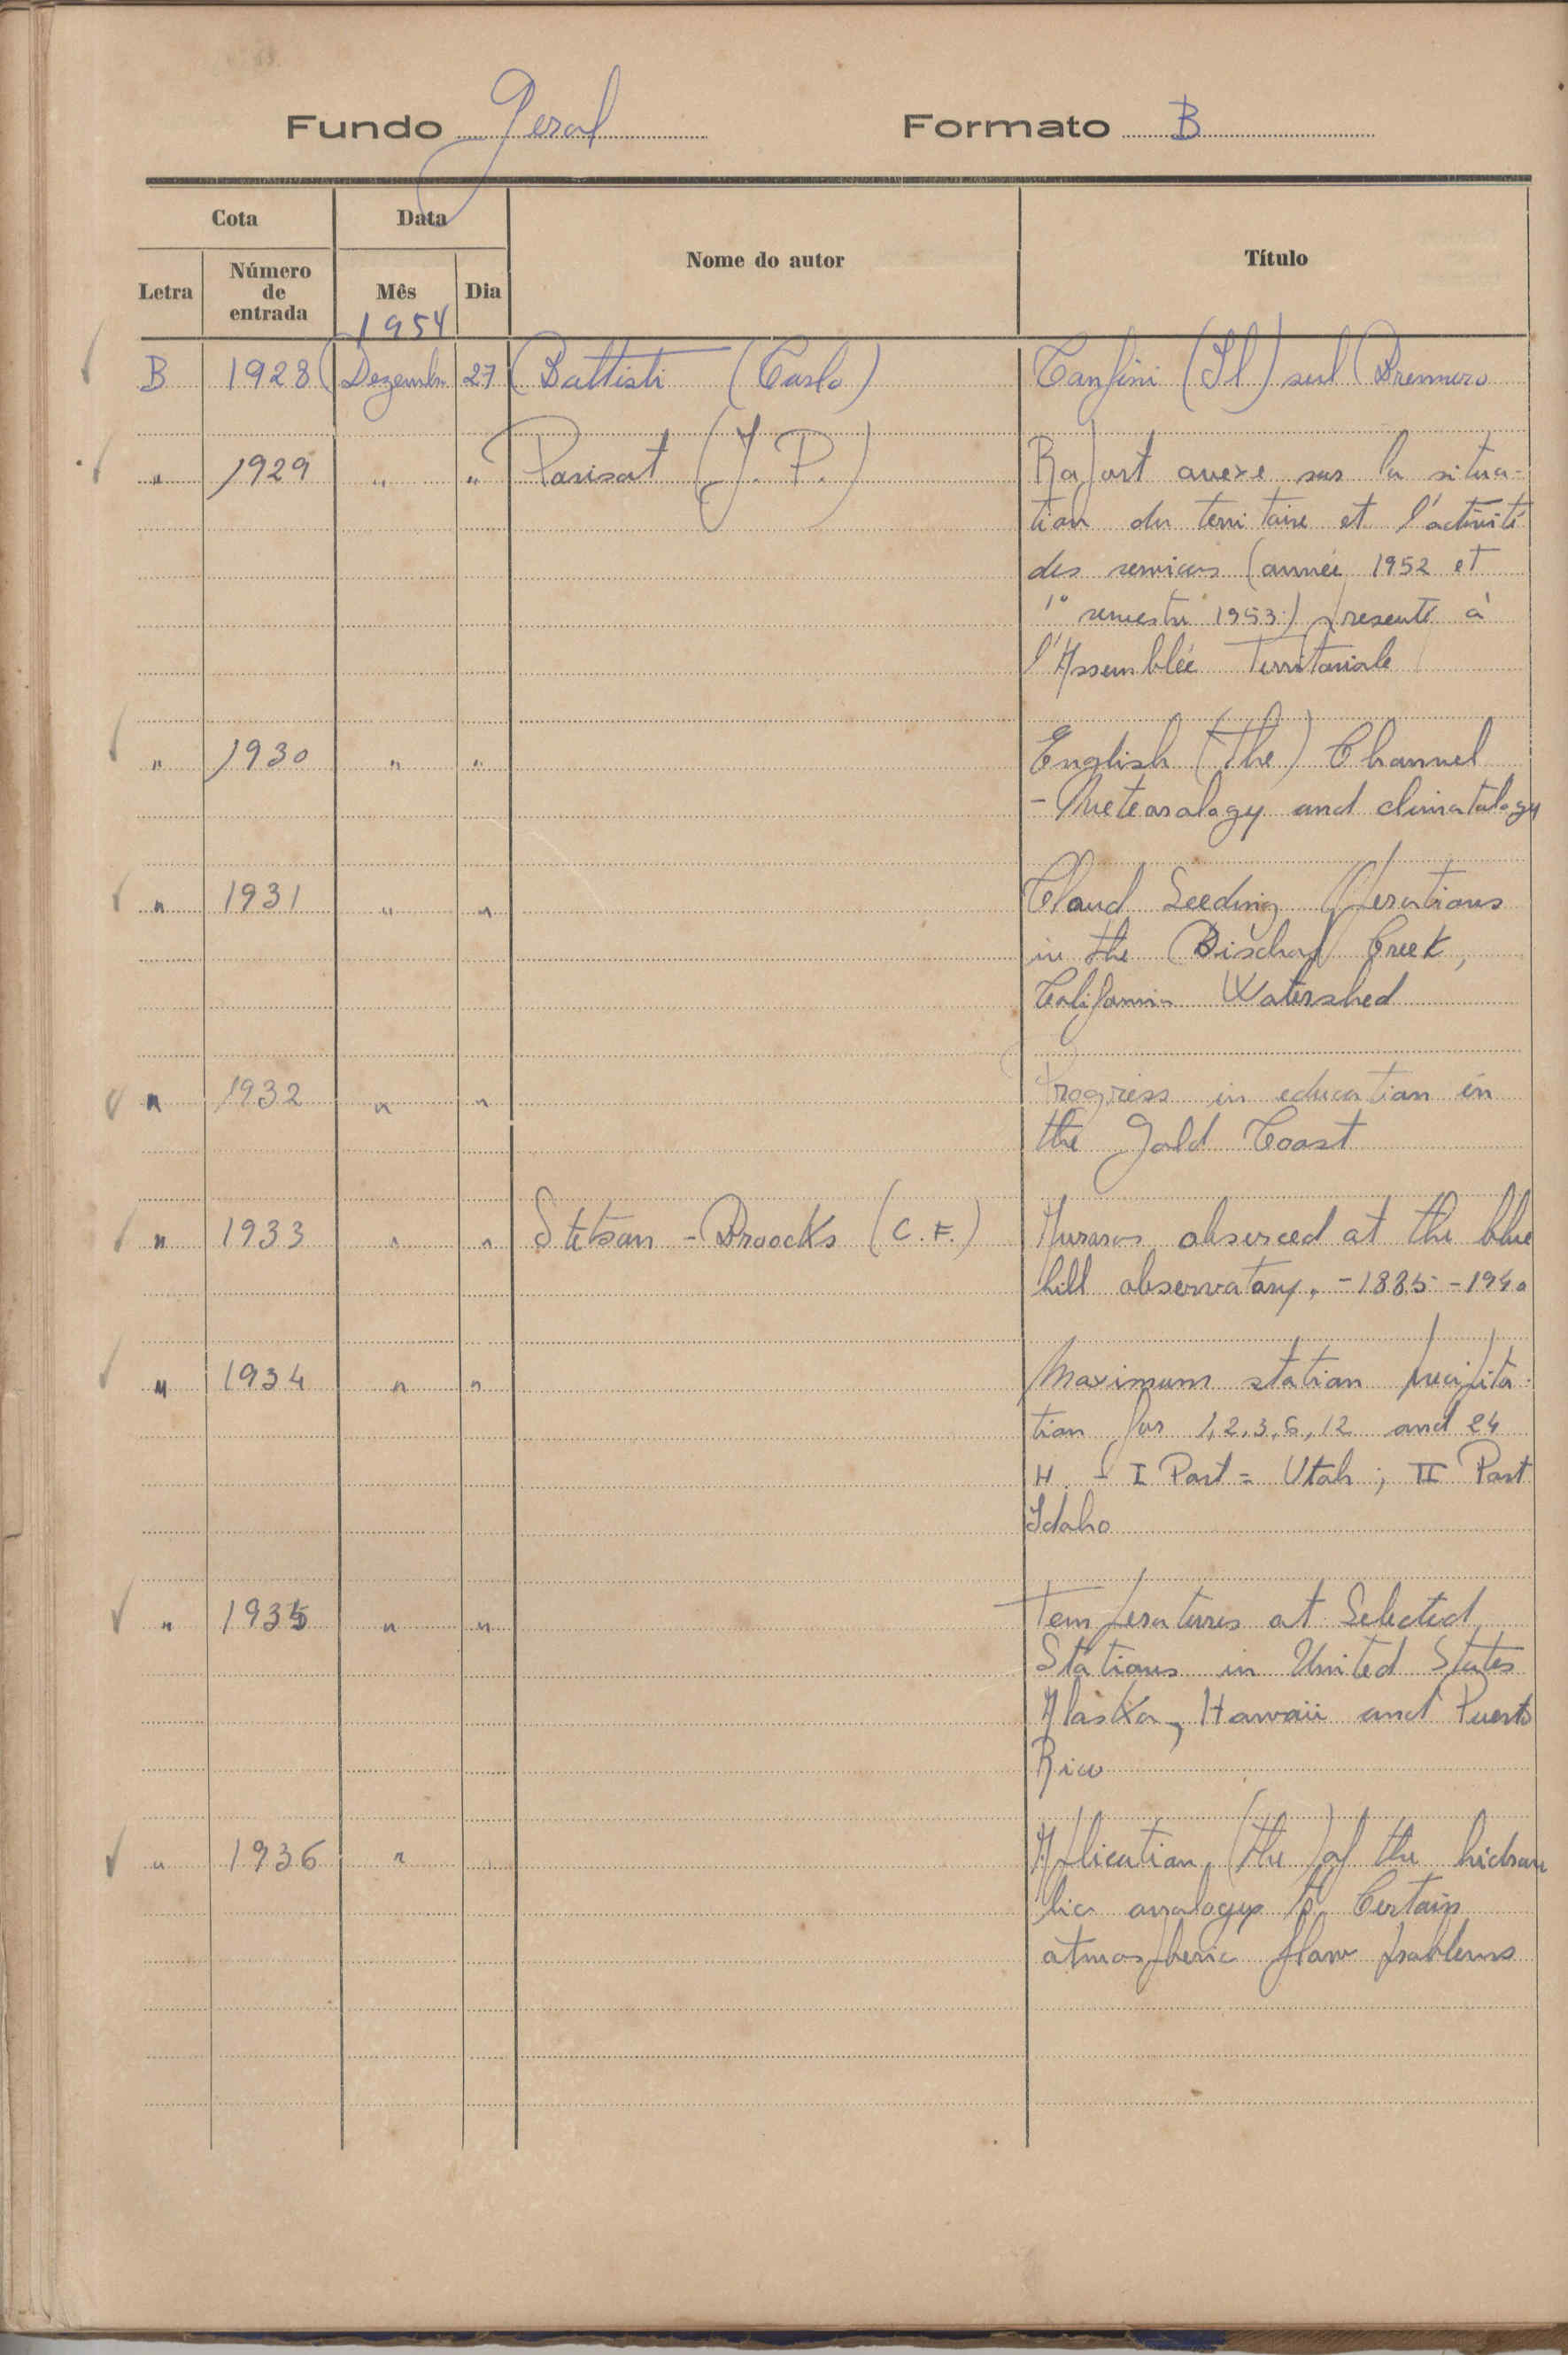 Fundo Geral Formato B
Cota Data Nome do autor Título
Letra Número de entrada Mês Dia
1954
B 1928 Dezembro 27 Battisti (Carlo) Confini (Il) sul Brennero
" 1929 " " Parisot (J. P.) Raport anexe sur la situa-
tion du territoire et l'activité
des services (année 1952 et
1º semestre 1953) presenté à
l'Assemblée Territoriale
" 1930 " " English (the) Channel
- Meteorology and climatology
" 1931 " " Cloud Seeding Operations
in the Bischop Creek,
California Watershed
" 1932 " " Progress in education in
the Gold Coast
" 1933 " " Stetson - Broocks (C. F.) Auroras observed at the blue
hill observatory. - 1885 - 1940
" 1934 " " Maximum station precipita-
tion for 1, 2, 3, 6, 12 and 24
H. - I Part = Utah ; II Part
Idaho
" 1935 " " Temperatures at Selected
Stations in United States
Alaska, Hawaii and Puerto
Rico
" 1936 " Aplication (the) of the hidrau
lic analogys to Certain
atmospheric flow problems